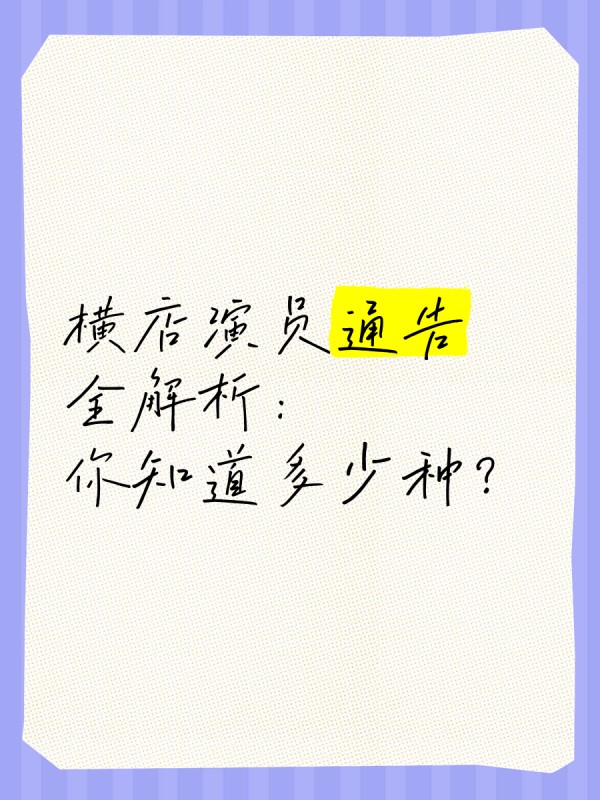 横店演员通告
全解析：
你知道多少种？